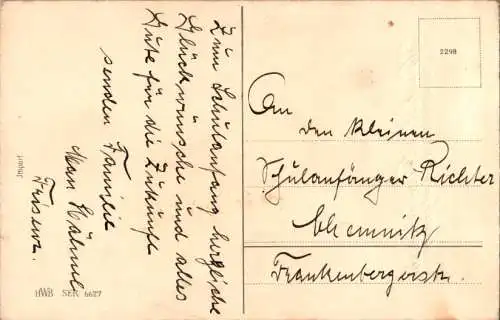 Zum Schulanfang herzliche
Glückwünsche und alles
Gute für die Zukunft
senden Familie
Max
Friseur.
HWB SER 6627
2298
An
den kleinen
Schulanfänger Richter
Chemnitz
Frankenbergerstr.